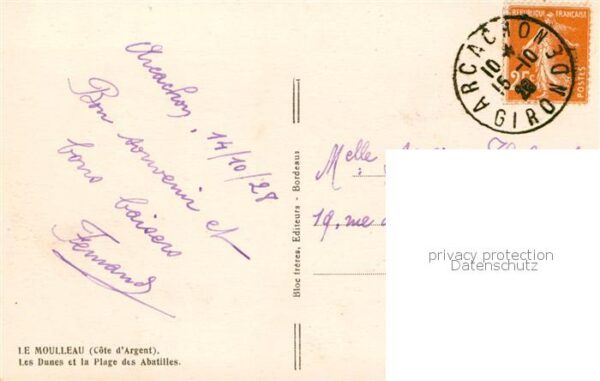 Arcachon, 14/10/28
Bon souvenir et
bons baisers
Fernand
LE MOULLEAU (Côte d'Argent).
Les Dunes et la Plage des Abatilles.
Bloc frères, Editeurs - Bordeaux
REPUBLIQUE FRANÇAISE
25c
POSTES
ARCACHON
10 *
15-10
28
GIRONDE
Melle
19, rue
privacy protection
Datenschutz